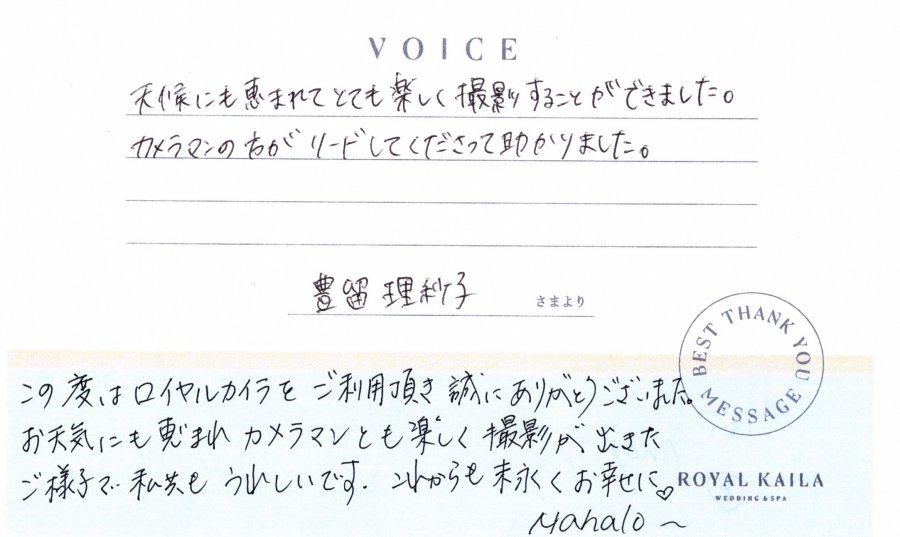 VOICE
天候にも恵まれてとても楽しく撮影することができました。
カメラマンの方がリードしてくださって助かりました。
豊留 理紗子 さまより
BEST THANK YOU
MESSAGE
この度はロイヤルカイラをご利用頂き誠にありがとうございました。
お天気にも恵まれカメラマンとも楽しく撮影が出きた
ご様子で私共もうれしいです。これからも末永くお幸せに♡
ROYAL KAILA
WEDDING & SPA
Mahalo～